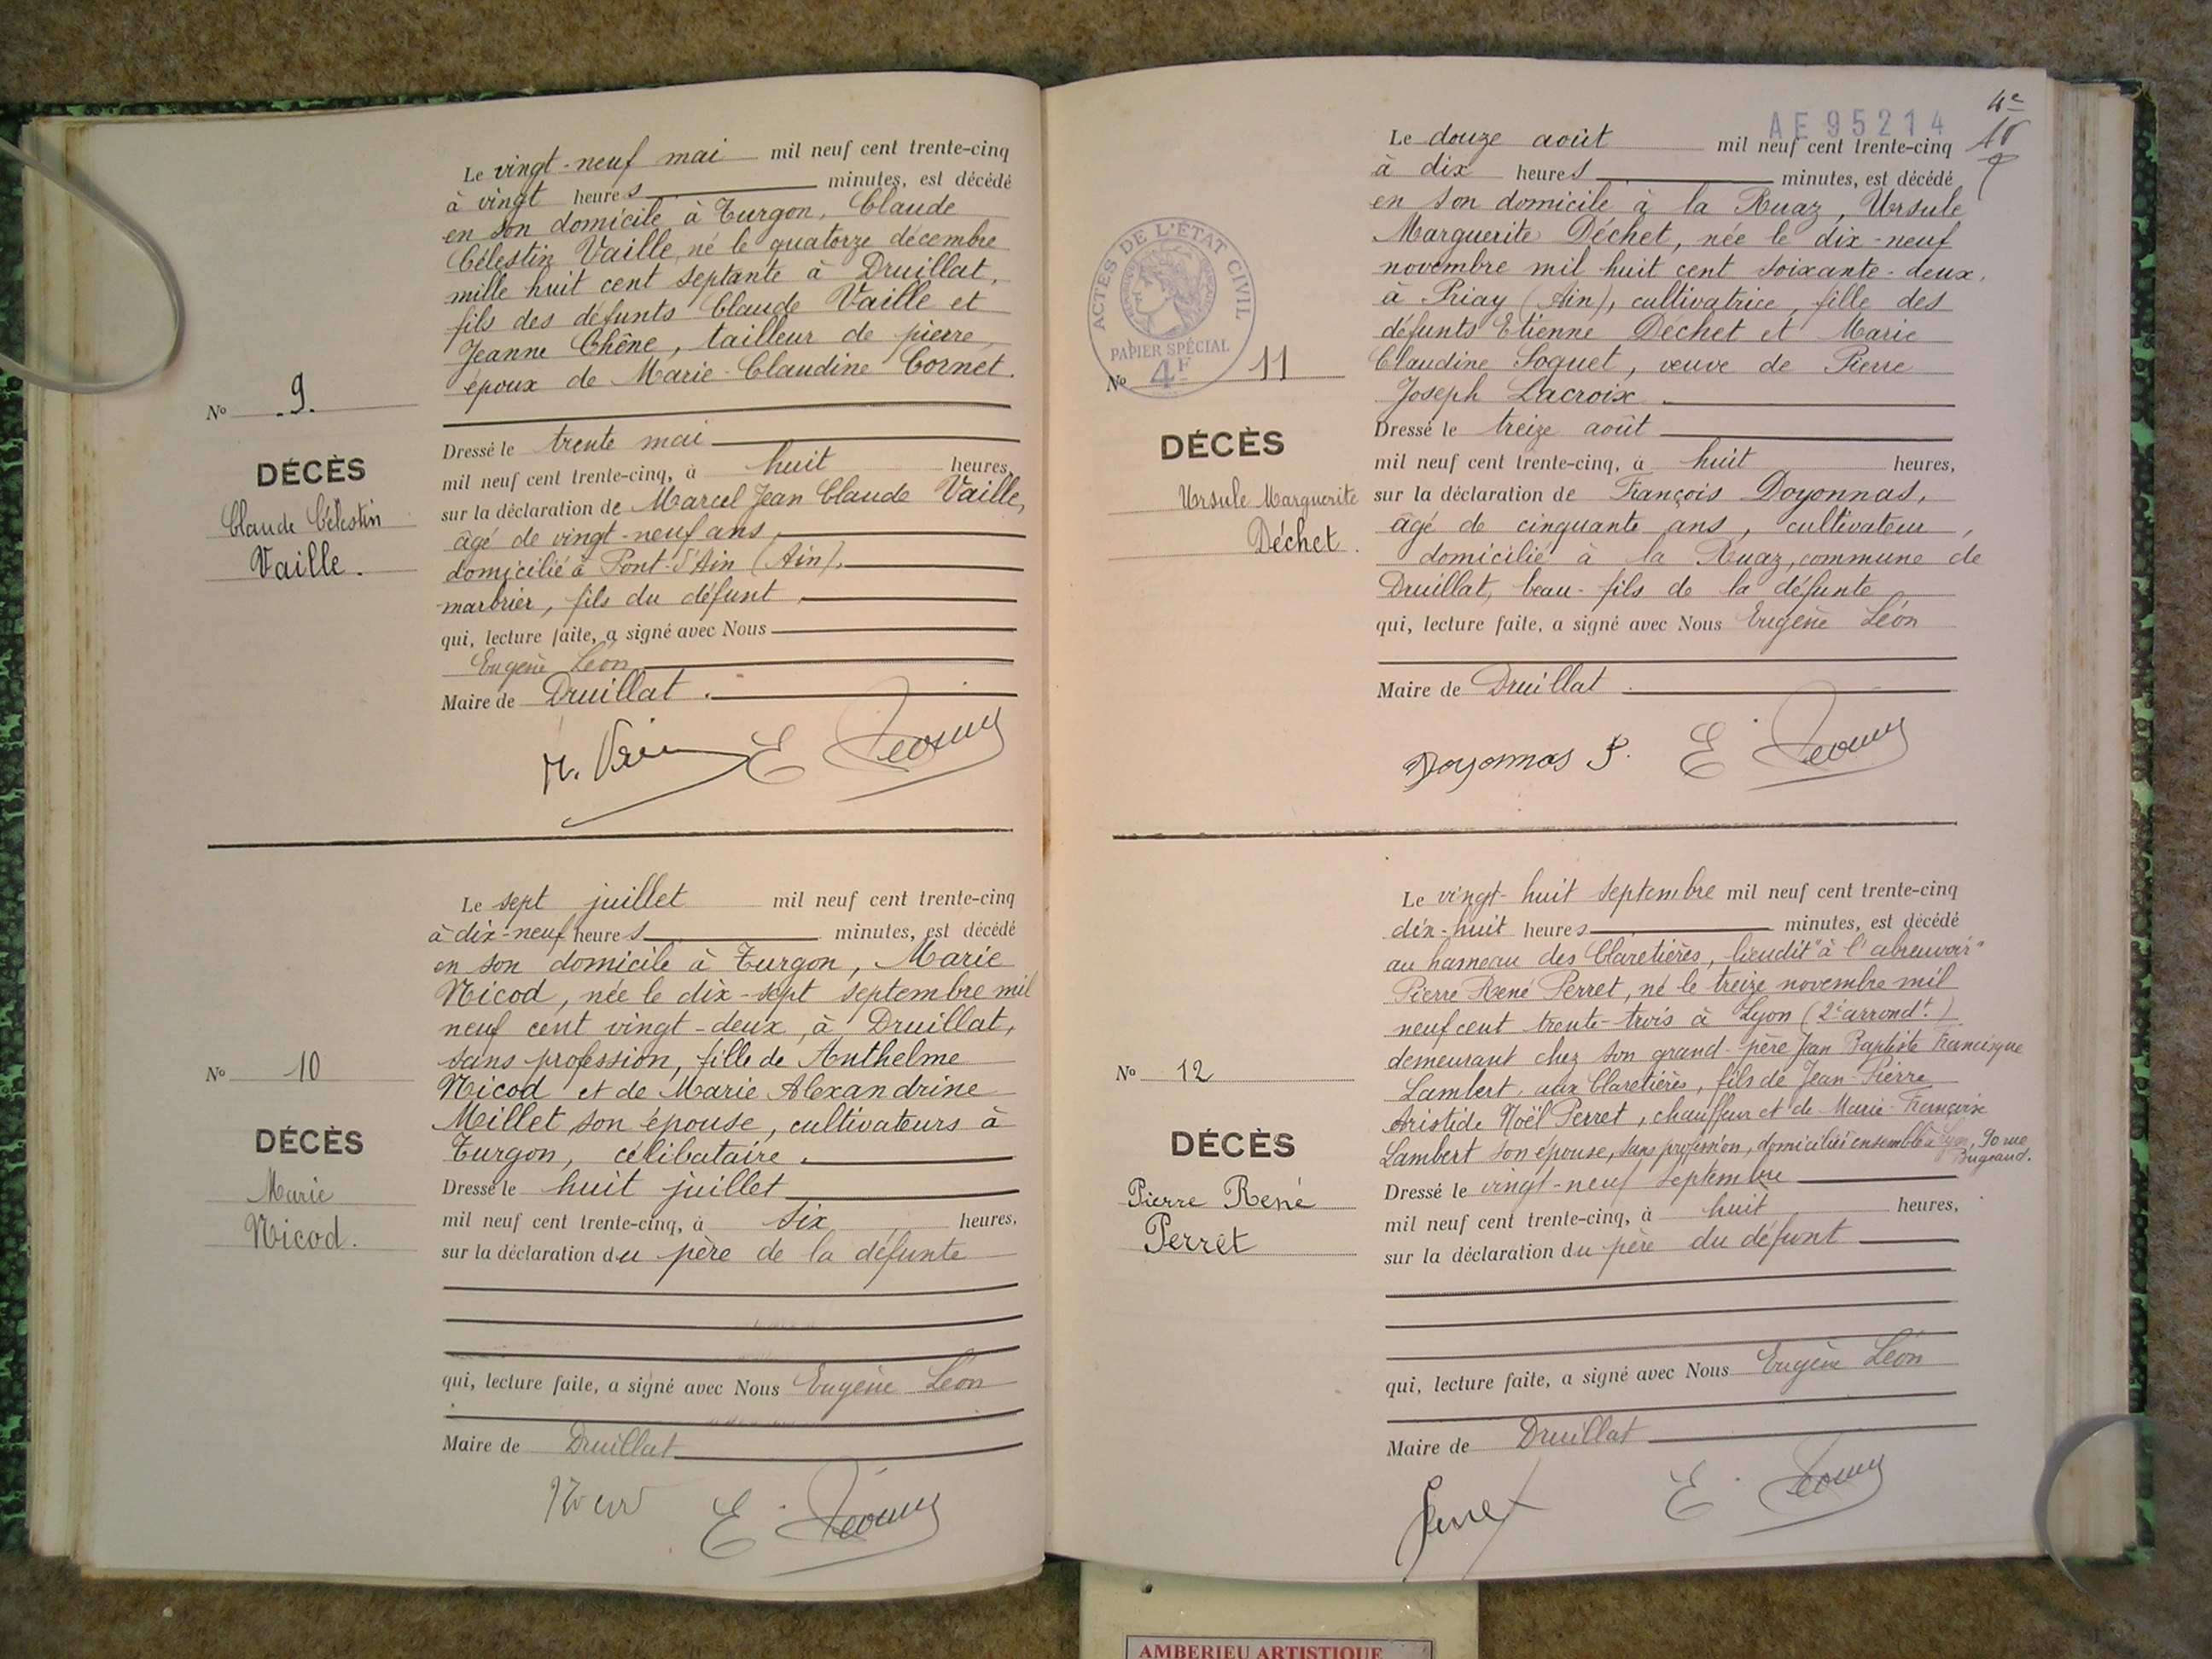 Le vingt-neuf mai mil neuf cent trente-cinq
à vingt heures minutes, est décédé
en son domicile à Turgon, Claude
Célestin Vaille, né le quatorze décembre
mille huit cent septante à Druillat,
fils des défunts Claude Vaille et
Jeanne Chêne, tailleur de pierre,
époux de Marie-Claudine Cornet.
No 9.
DÉCÈS
Claude Célestin
Vaille.
Dressé le trente mai
mil neuf cent trente-cinq, à huit heures,
sur la déclaration de Marcel Jean Claude Vaille,
âgé de vingt-neuf ans,
domicilié à Pont-d'Ain (Ain),
marbrier, fils du défunt,
qui, lecture faite, a signé avec Nous
Eugène Léon
Maire de Druillat.
Le sept juillet mil neuf cent trente-cinq
à dix-neuf heures minutes, est décédé
en son domicile à Turgon, Marie
Nicod, née le dix-sept septembre mil
neuf cent vingt-deux, à Druillat,
sans profession, fille de Anthelme
Nicod et de Marie Alexandrine
Millet son épouse, cultivateurs à
Turgon, célibataire.
No 10
DÉCÈS
Marie
Nicod.
Dressé le huit juillet
mil neuf cent trente-cinq, à six heures,
sur la déclaration du père de la défunte
qui, lecture faite, a signé avec Nous Eugène Léon
Maire de Druillat
4e
AE95214
Le douze août mil neuf cent trente-cinq
à dix heures minutes, est décédé
en son domicile à la Ruaz, Ursule
Marguerite Déchet, née le dix-neuf
novembre mil huit cent soixante-deux,
à Priay (Ain), cultivatrice, fille des
défunts Etienne Déchet et Marie
Claudine Soquet, veuve de Pierre
Joseph Lacroix.
ACTES DE L'ÉTAT CIVIL
PAPIER SPÉCIAL
4F
No 11
DÉCÈS
Ursule Marguerite
Déchet.
Dressé le treize août
mil neuf cent trente-cinq, à huit heures,
sur la déclaration de François Doyonnas,
âgé de cinquante ans, cultivateur,
domicilié à la Ruaz, commune de
Druillat, beau-fils de la défunte
qui, lecture faite, a signé avec Nous Eugène Léon
Maire de Druillat
Doyonnas F.
Le vingt-huit septembre mil neuf cent trente-cinq
dix-huit heures minutes, est décédé
au hameau des Claretières, lieudit "à l'abreuvoir"
Pierre René Perret, né le treize novembre mil
neuf cent trente-trois à Lyon (2e arrondt.)
demeurant chez son grand-père Jean Baptiste Francisque
Lambert, aux Claretières, fils de Jean-Pierre
Aristide Noël Perret, chauffeur et de Marie-Françoise
Lambert son épouse, sans profession, domiciliés ensemble à Lyon, 90 rue
Bugeaud.
No 12
DÉCÈS
Pierre René
Perret
Dressé le vingt-neuf septembre
mil neuf cent trente-cinq, à huit heures,
sur la déclaration du père du défunt
qui, lecture faite, a signé avec Nous Eugène Léon
Maire de Druillat
Perret
AMBERIEU ARTISTIQUE